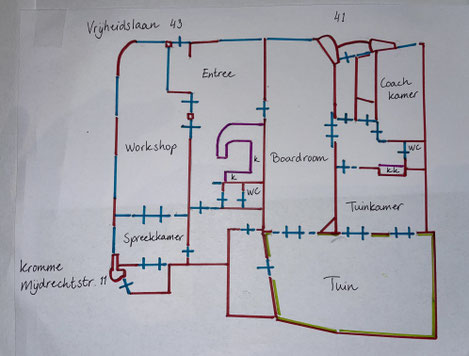 Vrijheidslaan 43
41
Entree
Coach
kamer
Workshop
Boardroom
WC
k
k
kk
WC
Tuinkamer
Spreekkamer
Kromme
Mijdrechtstr. 11
Tuin